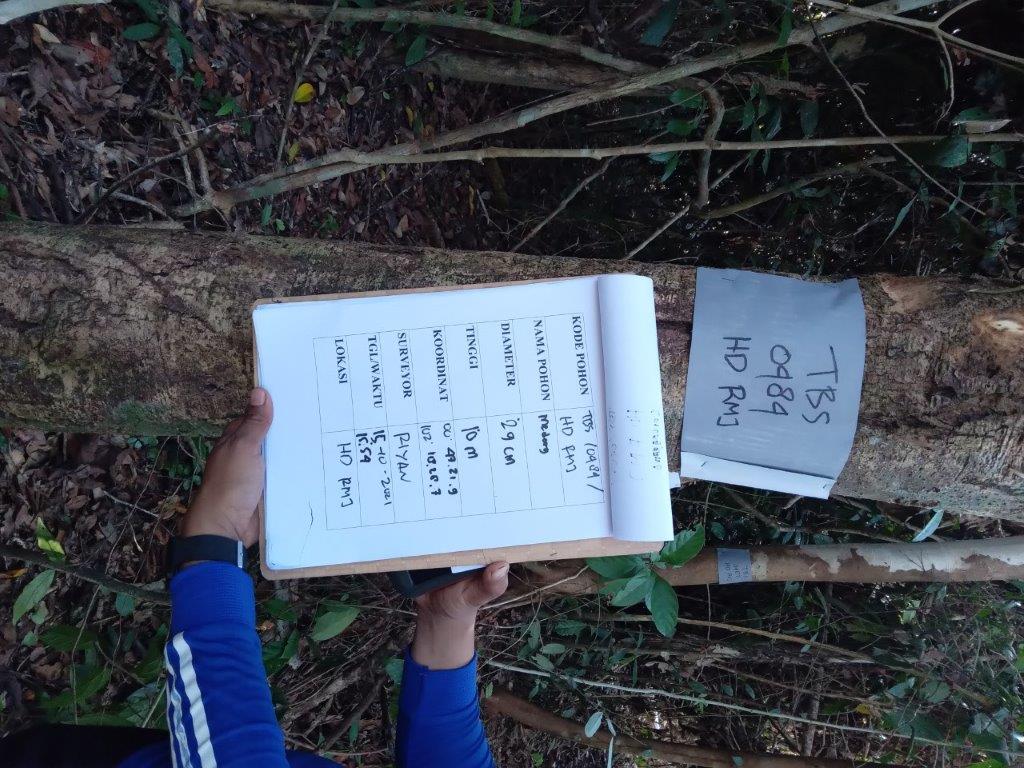 TBS
0484
HD RMJ
KODE POHON TBS /0484/
HD RMJ
NAMA POHON Medang
DIAMETER 29 cm
TINGGI 10 m
KOORDINAT 00° 47.21.9
102° 18.28.7
SURVEYOR RIYAN
TGL/WAKTU 15-10-2021
15.54
LOKASI HD RMJ